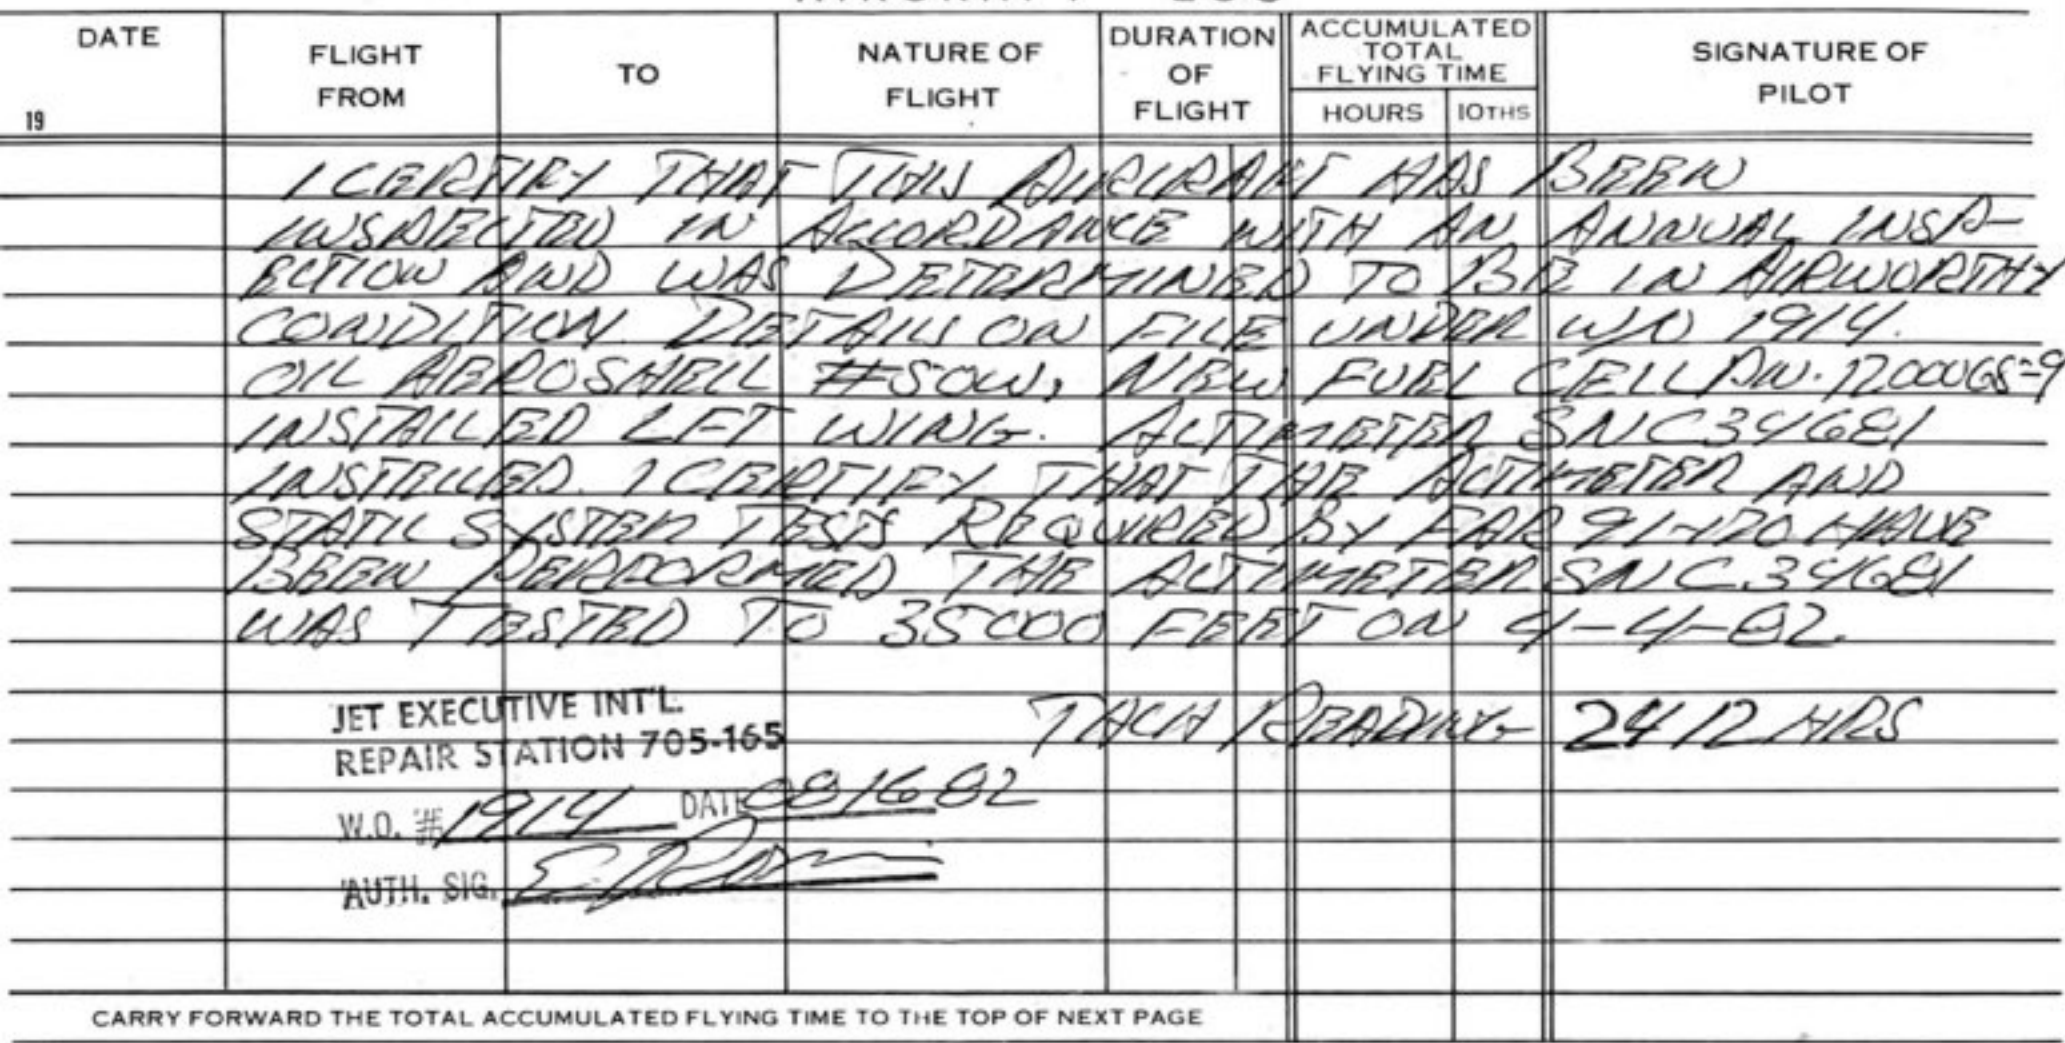 AIRCRAFT LOG
DATE
19
FLIGHT FROM
TO
NATURE OF FLIGHT
DURATION OF FLIGHT
ACCUMULATED TOTAL FLYING TIME
HOURS 10THS
SIGNATURE OF PILOT
I CERTIFY THAT THIS AIRCRAFT HAS BEEN
INSPECTED IN ACCORDANCE WITH AN ANNUAL INSP-
ECTION AND WAS DETERMINED TO BE IN AIRWORTHY
CONDITION. DETAILS ON FILE UNDER W/O 1914.
OIL AEROSHELL #50W, NEW FUEL CELL
INSTALLED LFT WING. ALTIMETER SN C34681
INSTALLED. I CERTIFY THAT THE ALTIMETER AND
STATIC SYSTEM TESTS REQUIRED BY FAR HAVE
BEEN PERFORMED THE ALTIMETER SN C34681
WAS TESTED TO 35000 FEET ON 4-4-82.
JET EXECUTIVE INT'L.
REPAIR STATION 705-165
TACH READING 2412 HRS
W.O. # 1914 DATE 081682
AUTH. SIG.
CARRY FORWARD THE TOTAL ACCUMULATED FLYING TIME TO THE TOP OF NEXT PAGE